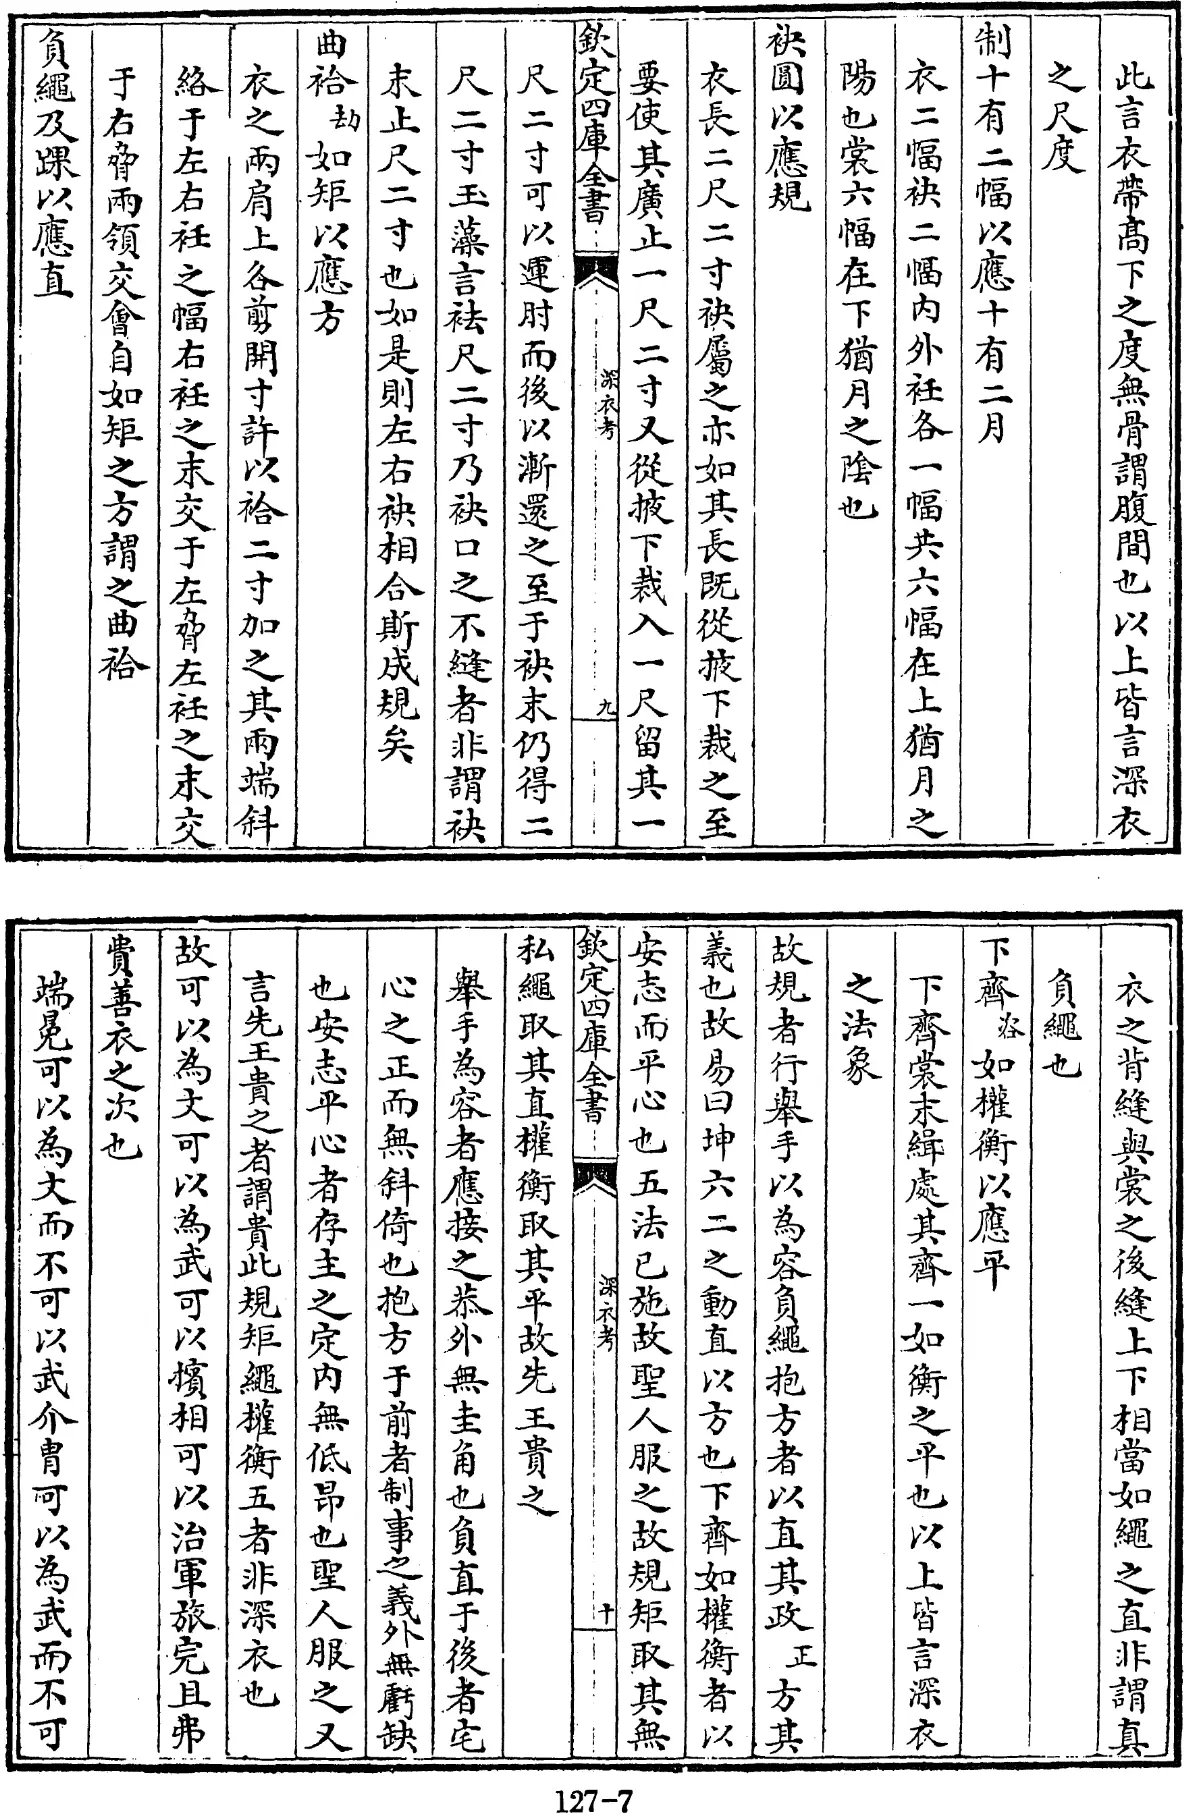 此言衣帶高下之度無骨謂腹間也以上皆言深衣
之尺度
制十有二幅以應十有二月
衣二幅袂二幅内外衽各一幅共六幅在上猶月之
陽也裳六幅在下猶月之陰也
袂圓以應規
衣長二尺二寸袂屬之亦如其長既從掖下裁之至
要使其廣止一尺二寸又從掖下裁入一尺留其一
欽定四庫全書
深衣考
九
尺二寸可以運肘而後以漸還之至于袂末仍得二
尺二寸玉藻言袪尺二寸乃袂口之不縫者非謂袂
末止尺二寸也如是則左右袂相合斯成規矣
曲袷劫如矩以應方
衣之兩肩上各剪開寸許以袷二寸加之其兩端斜
絡于左右衽之幅右衽之末交于左脅左衽之末交
于右脅兩領交會自如矩之方謂之曲袷
負繩及踝以應直
衣之背縫與裳之後縫上下相當如繩之直非謂真
負繩也
下齊咨如權衡以應平
下齊裳末緝處其齊一如衡之平也以上皆言深衣
之法象
故規者行舉手以為容負繩抱方者以直其政正方其
義也故易曰坤六二之動直以方也下齊如權衡者以
安志而平心也五法已施故聖人服之故規矩取其無
欽定四庫全書
深衣考
十
私繩取其直權衡取其平故先王貴之
舉手為容者應接之恭外無圭角也負直于後者宅
心之正而無斜倚也抱方于前者制事之義外無虧缺
也安志平心者存主之定内無低昂也聖人服之又
言先王貴之者謂貴此規矩繩權衡五者非深衣也
故可以為文可以為武可以擯相可以治軍旅完且弗
費善衣之次也
端冕可以為文而不可以武介胄可以為武而不可
127-7